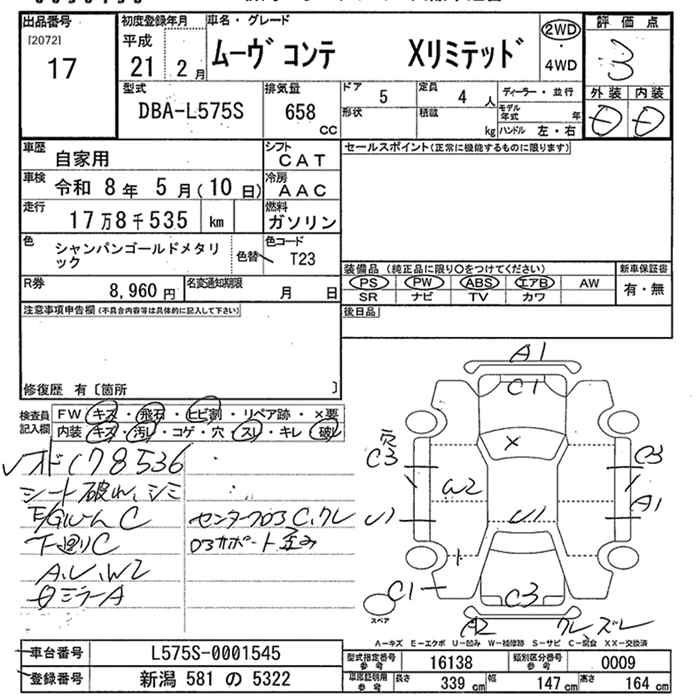 出品番号 初度登録年月 車名・グレード 2WD 評価点
[2072] 平成 ムーヴコンテ Xリミテッド ・ 3
17 21年 2月 4WD
型式 排気量 ドア 5 定員 4人 ディーラー・並行 外装 内装
DBA-L575S 658cc 形状 積載 kg モデル年式 年 ハンドル 左・右
車歴 自家用 シフト CAT セールスポイント(正常に機能するものに限ります)
車検 令和 8年 5月(10日) 冷房 AAC
走行 17万8千535 km 燃料 ガソリン
色 シャンパンゴールドメタリック 色替 色コード T23
装備品 (純正品に限り○をつけてください) 新車保証書
R券 8,960円 名変通知期限 月 日 PS PW ABS エアB AW 有・無
SR ナビ TV カワ
注意事項申告欄(不具合内容等は具体的に記入して下さい) 後日品
修復歴 有〔箇所 〕
検査員記入欄 FW キズ・飛石・ヒビ割・リペア跡・×要
内装 キズ・汚レ・コゲ・穴・スレ・キレ・破レ
オド178536
シート破れ、シミ
C センターフロアC、クレ
下廻りC
A、U、W2
ミラーA
A1
C1
穴
C3 × C3
W2
U1 U1 A1
C1 C3
スペア A2 クレ ズレ
A-キズ E-エクボ U-凹み W-補修跡 S-サビ C-腐食 XX-交換済
車台番号 L575S-0001545
型式指定番号参考 16138 類別区分番号参考 0009
登録番号 新潟 581 の 5322
車庫証明用参考 長さ 339 cm 幅 147 cm 高さ 164 cm